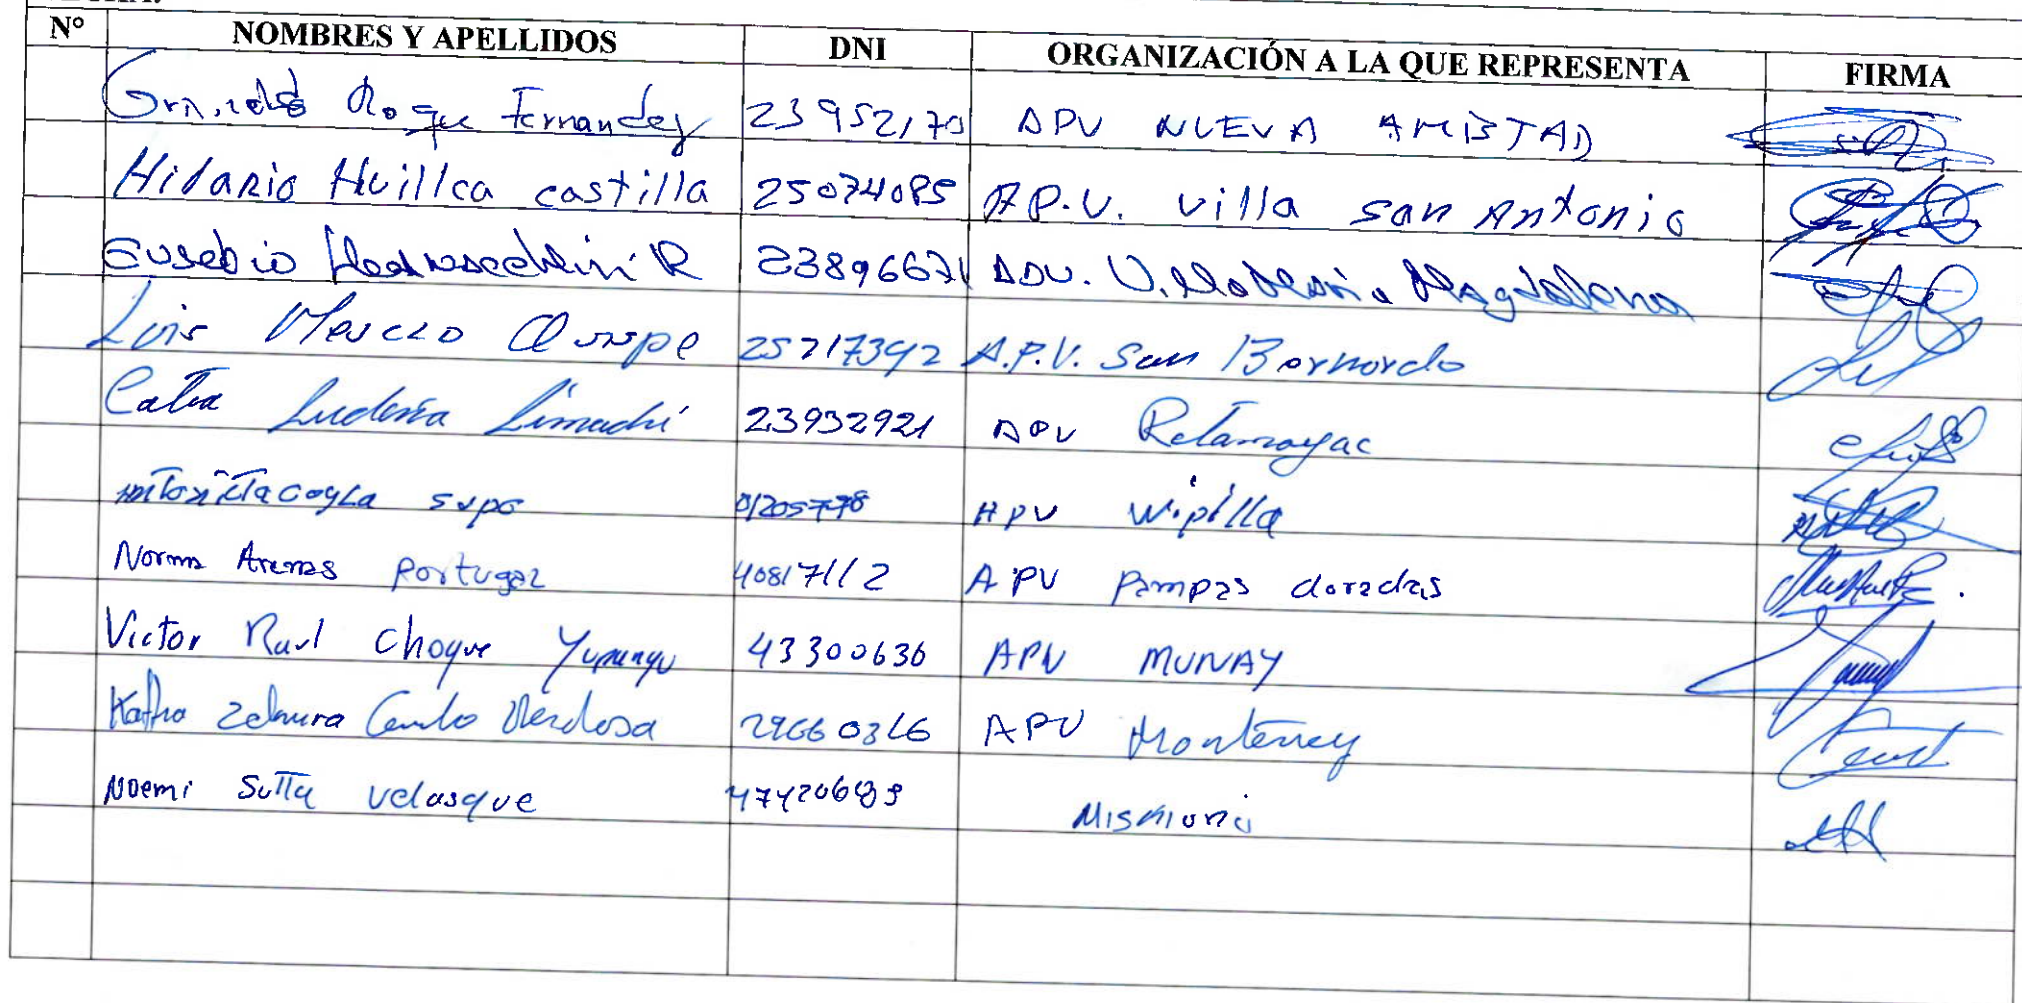 N° NOMBRES Y APELLIDOS DNI ORGANIZACIÓN A LA QUE REPRESENTA FIRMA
Roque Fernandez 23952170 APV NUEVA AMISTAD
Hilario Huillca castilla 25074085 A.P.V. villa san Antonio
Eusebio R 23896671 APV. Villa Maria Magdalena
Luis Quispe 25217392 A.P.V. San Bernardo
Ludeña Limachi 23932921 APV Retamayac
Coyla supo 01205778 APV Wipilla
Norma Arenas Portugal 40817112 APV Pampas doradas
Victor Raul Choque Yupanqui 43300636 APV MUNAY
Mendosa APV Monterrey
Noemi Sutta velasque